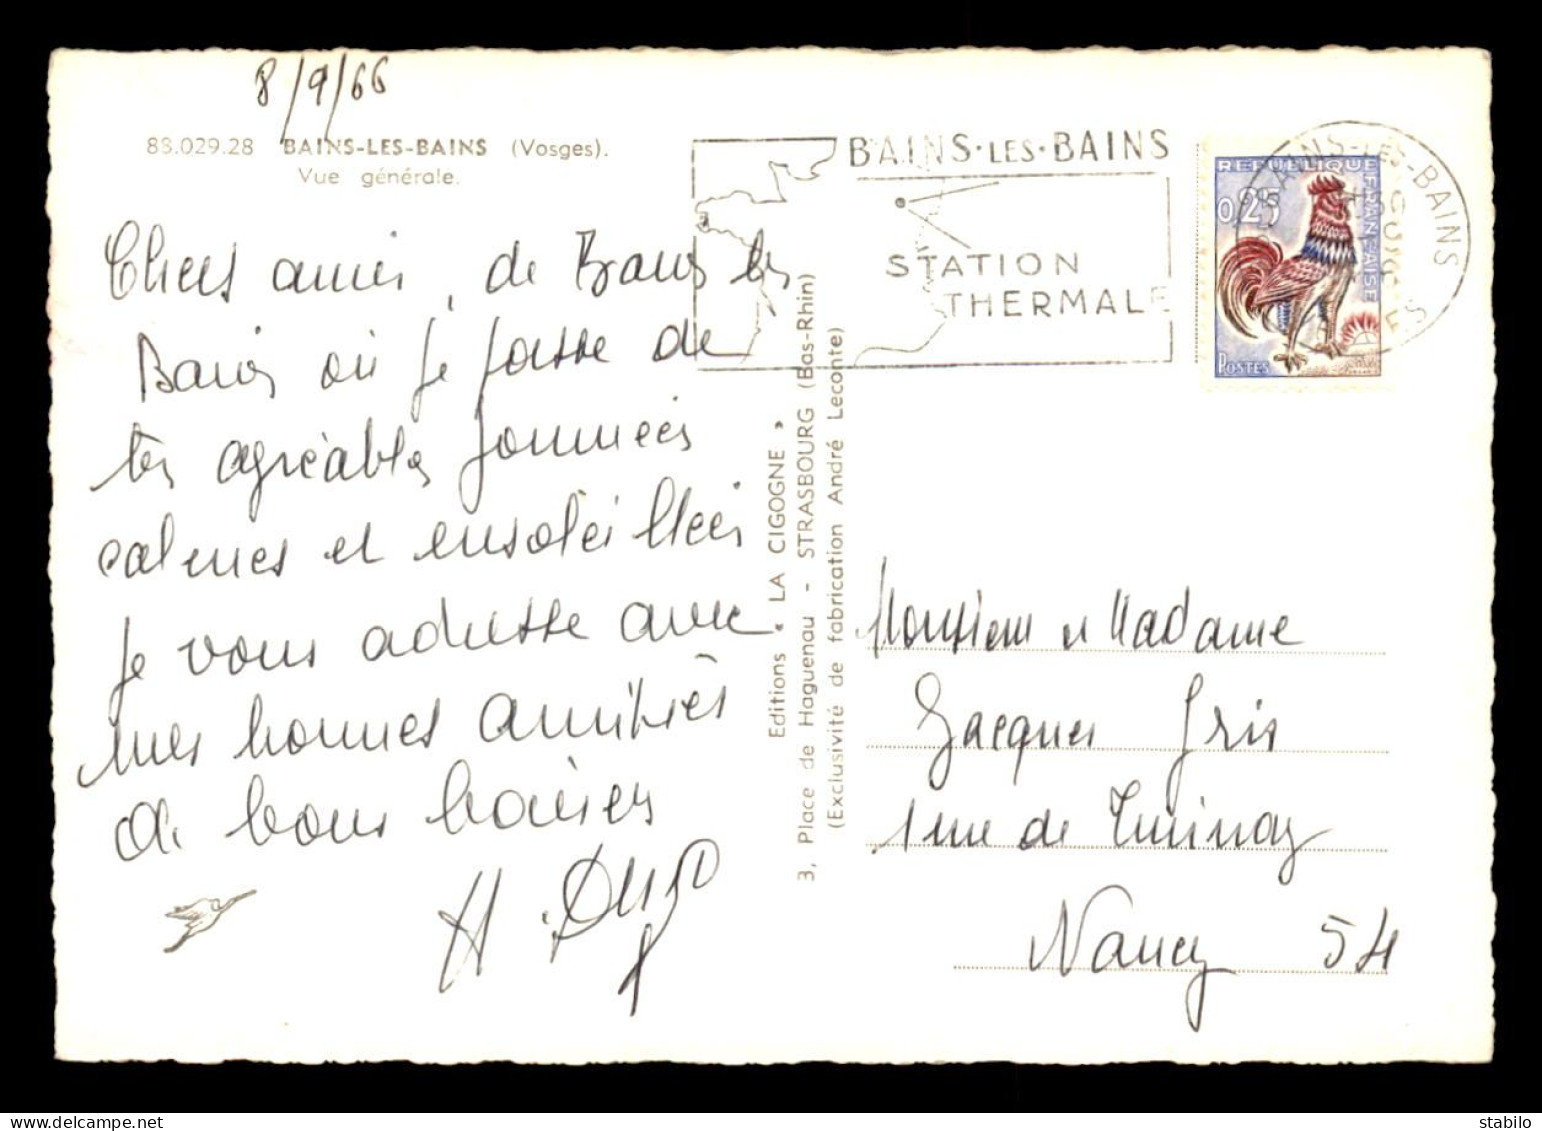 8/9/66
88.029.28 BAINS-LES-BAINS (Vosges).
Vue générale.
Chers amis, de Bains les
Bains où je passe de
très agréables journées
calmes et ensoleillées
je vous adresse avec
mes bonnes amitiés
de bons baisers
H.
Editions « LA CIGOGNE »
3, Place de Haguenau - STRASBOURG (Bas-Rhin)
(Exclusivité de fabrication André Leconte)
BAINS·LES·BAINS
STATION
THERMALE
REPUBLIQUE FRANÇAISE
0,25
POSTES
BAINS-LES-BAINS
Monsieur et Madame
Jacques Gris
1 rue de
Nancy 54
stabilo